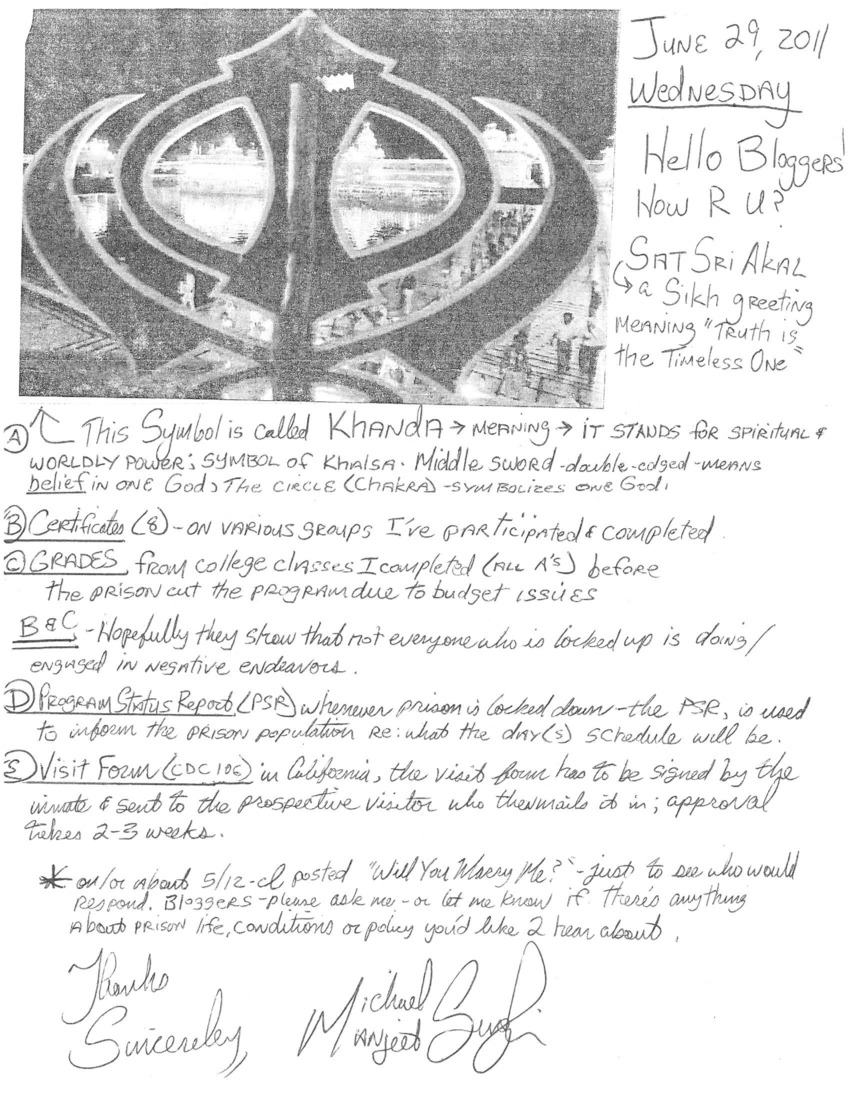 JUNE 29, 2011
WEDNESDAY
Hello Bloggers'
How R U?
SAT SRI AKAL
↳ a Sikh greeting
MEANING "TRUTH is
the TIMELESS ONE"
(A) This Symbol is called KHANDA → MEANING → IT STANDS for SPIRITUAL &
WORLDLY POWER; SYMBOL OF KHALSA. Middle SWORD - double-edged - MEANS
belief in ONE God; THE CIRCLE (CHAKRA) - SYMBOLIZES ONE God.
(B) Certificates (8) - ON VARIOUS GROUPS I'VE PARTICIPATED & COMPLETED.
(C) GRADES, from college classes I completed (ALL A'S) before
the PRISON CUT THE PROGRAM due to budget ISSUES
B & C - Hopefully they show that not everyone who is locked up is doing/
engaged in NEGATIVE ENDEAVORS.
(D) PROGRAM STATUS REPORT (PSR) whenever prison is locked down - the PSR, is used
to inform the PRISON POPULATION RE: what the day(s) schedule will be.
(E) Visit Form (CDC 106) in California, the visit form has to be signed by the
inmate & sent to the prospective visitor who then mails it in; approval
takes 2-3 weeks.
* on/or About 5/12 - I posted "Will You Marry Me?" - just to see who would
RESPOND. Bloggers - please ask me - or let me know if there's anything
About PRISON life, conditions or policy you'd like 2 hear about.
Thanks
Sincereley,
Michael
Manjeet Singh